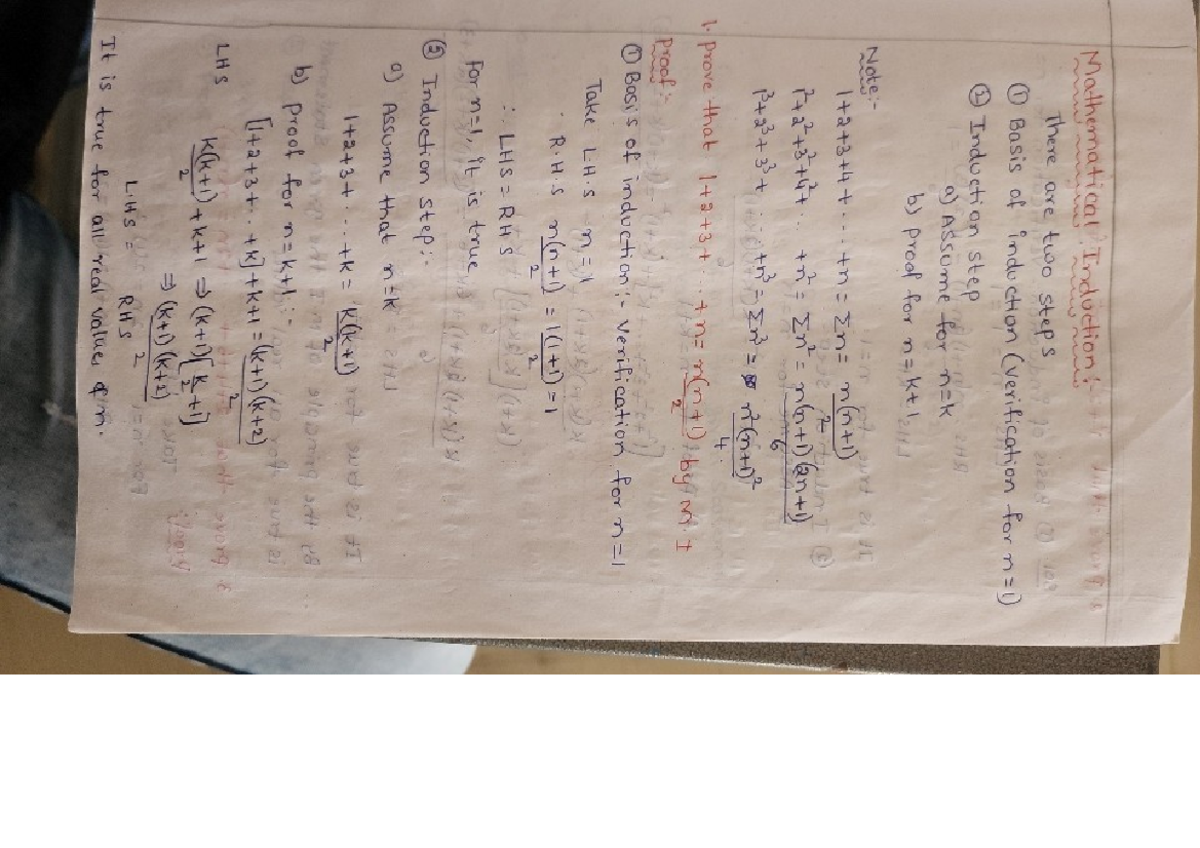 Mathematical Induction:-
There are two steps
① Basis of induction (verification for n=1)
② Induction step
a) Assume for n=k
b) proof for n=k+1
Note:-
1+2+3+4+...+n = Σn = n(n+1)/2
1²+2²+3²+4²+... +n² = Σn² = n(n+1)(2n+1)/6
1³+2³+3³+... +n³ = Σn³ = n²(n+1)²/4
1. prove that 1+2+3+...+n = n(n+1)/2 by M.I
Proof:-
① Basis of induction:- verification for n=1
Take L.H.S n=1
R.H.S n(n+1)/2 = 1(1+1)/2 = 1
∴ LHS = RHS
For n=1, it is true
② Induction step:-
a) Assume that n=k
1+2+3+...+k = k(k+1)/2
b) proof for n=k+1:-
[1+2+3+...+k]+k+1 = (k+1)(k+2)/2
LHS
k(k+1)/2 + k+1 ⇒ (k+1)[k/2+1]
⇒ (k+1)(k+2)/2
L.H.S = RHS
It is true for all real values of n.